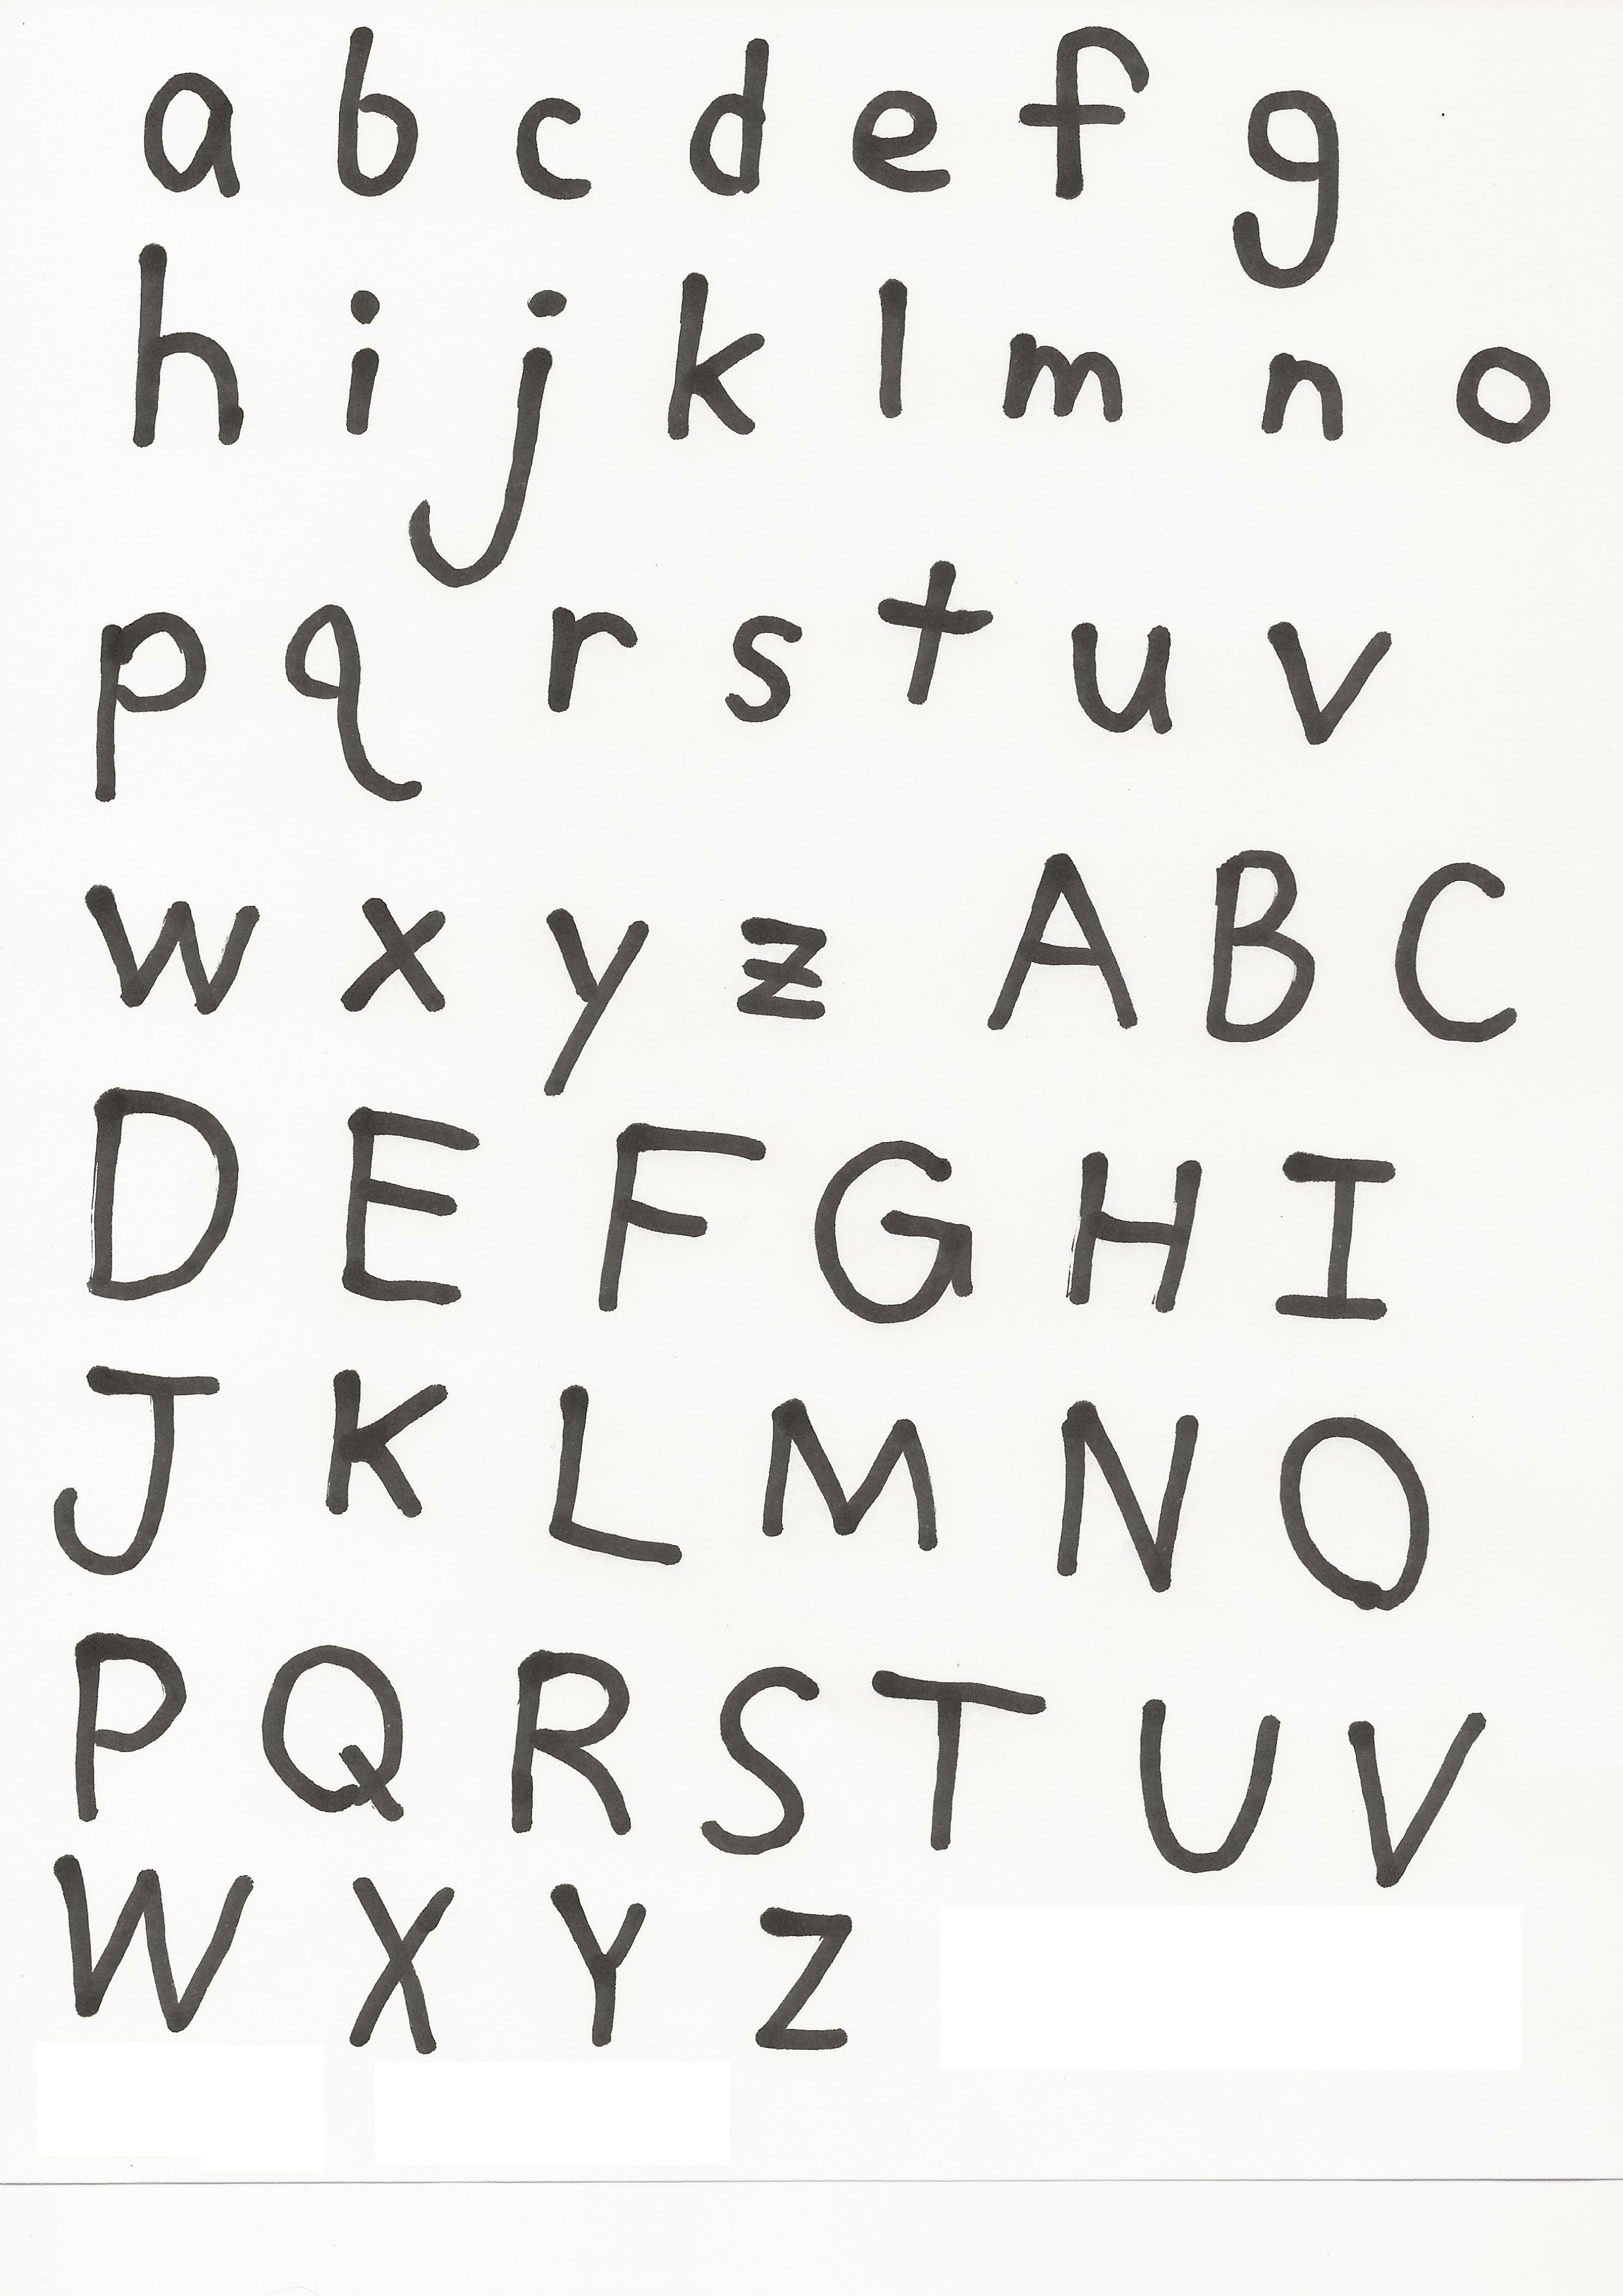 a b c d e f g
h i j k l m n o
p q r s t u v
w x y z A B C
D E F G H I
J K L M N O
P Q R S T U V
W X Y Z